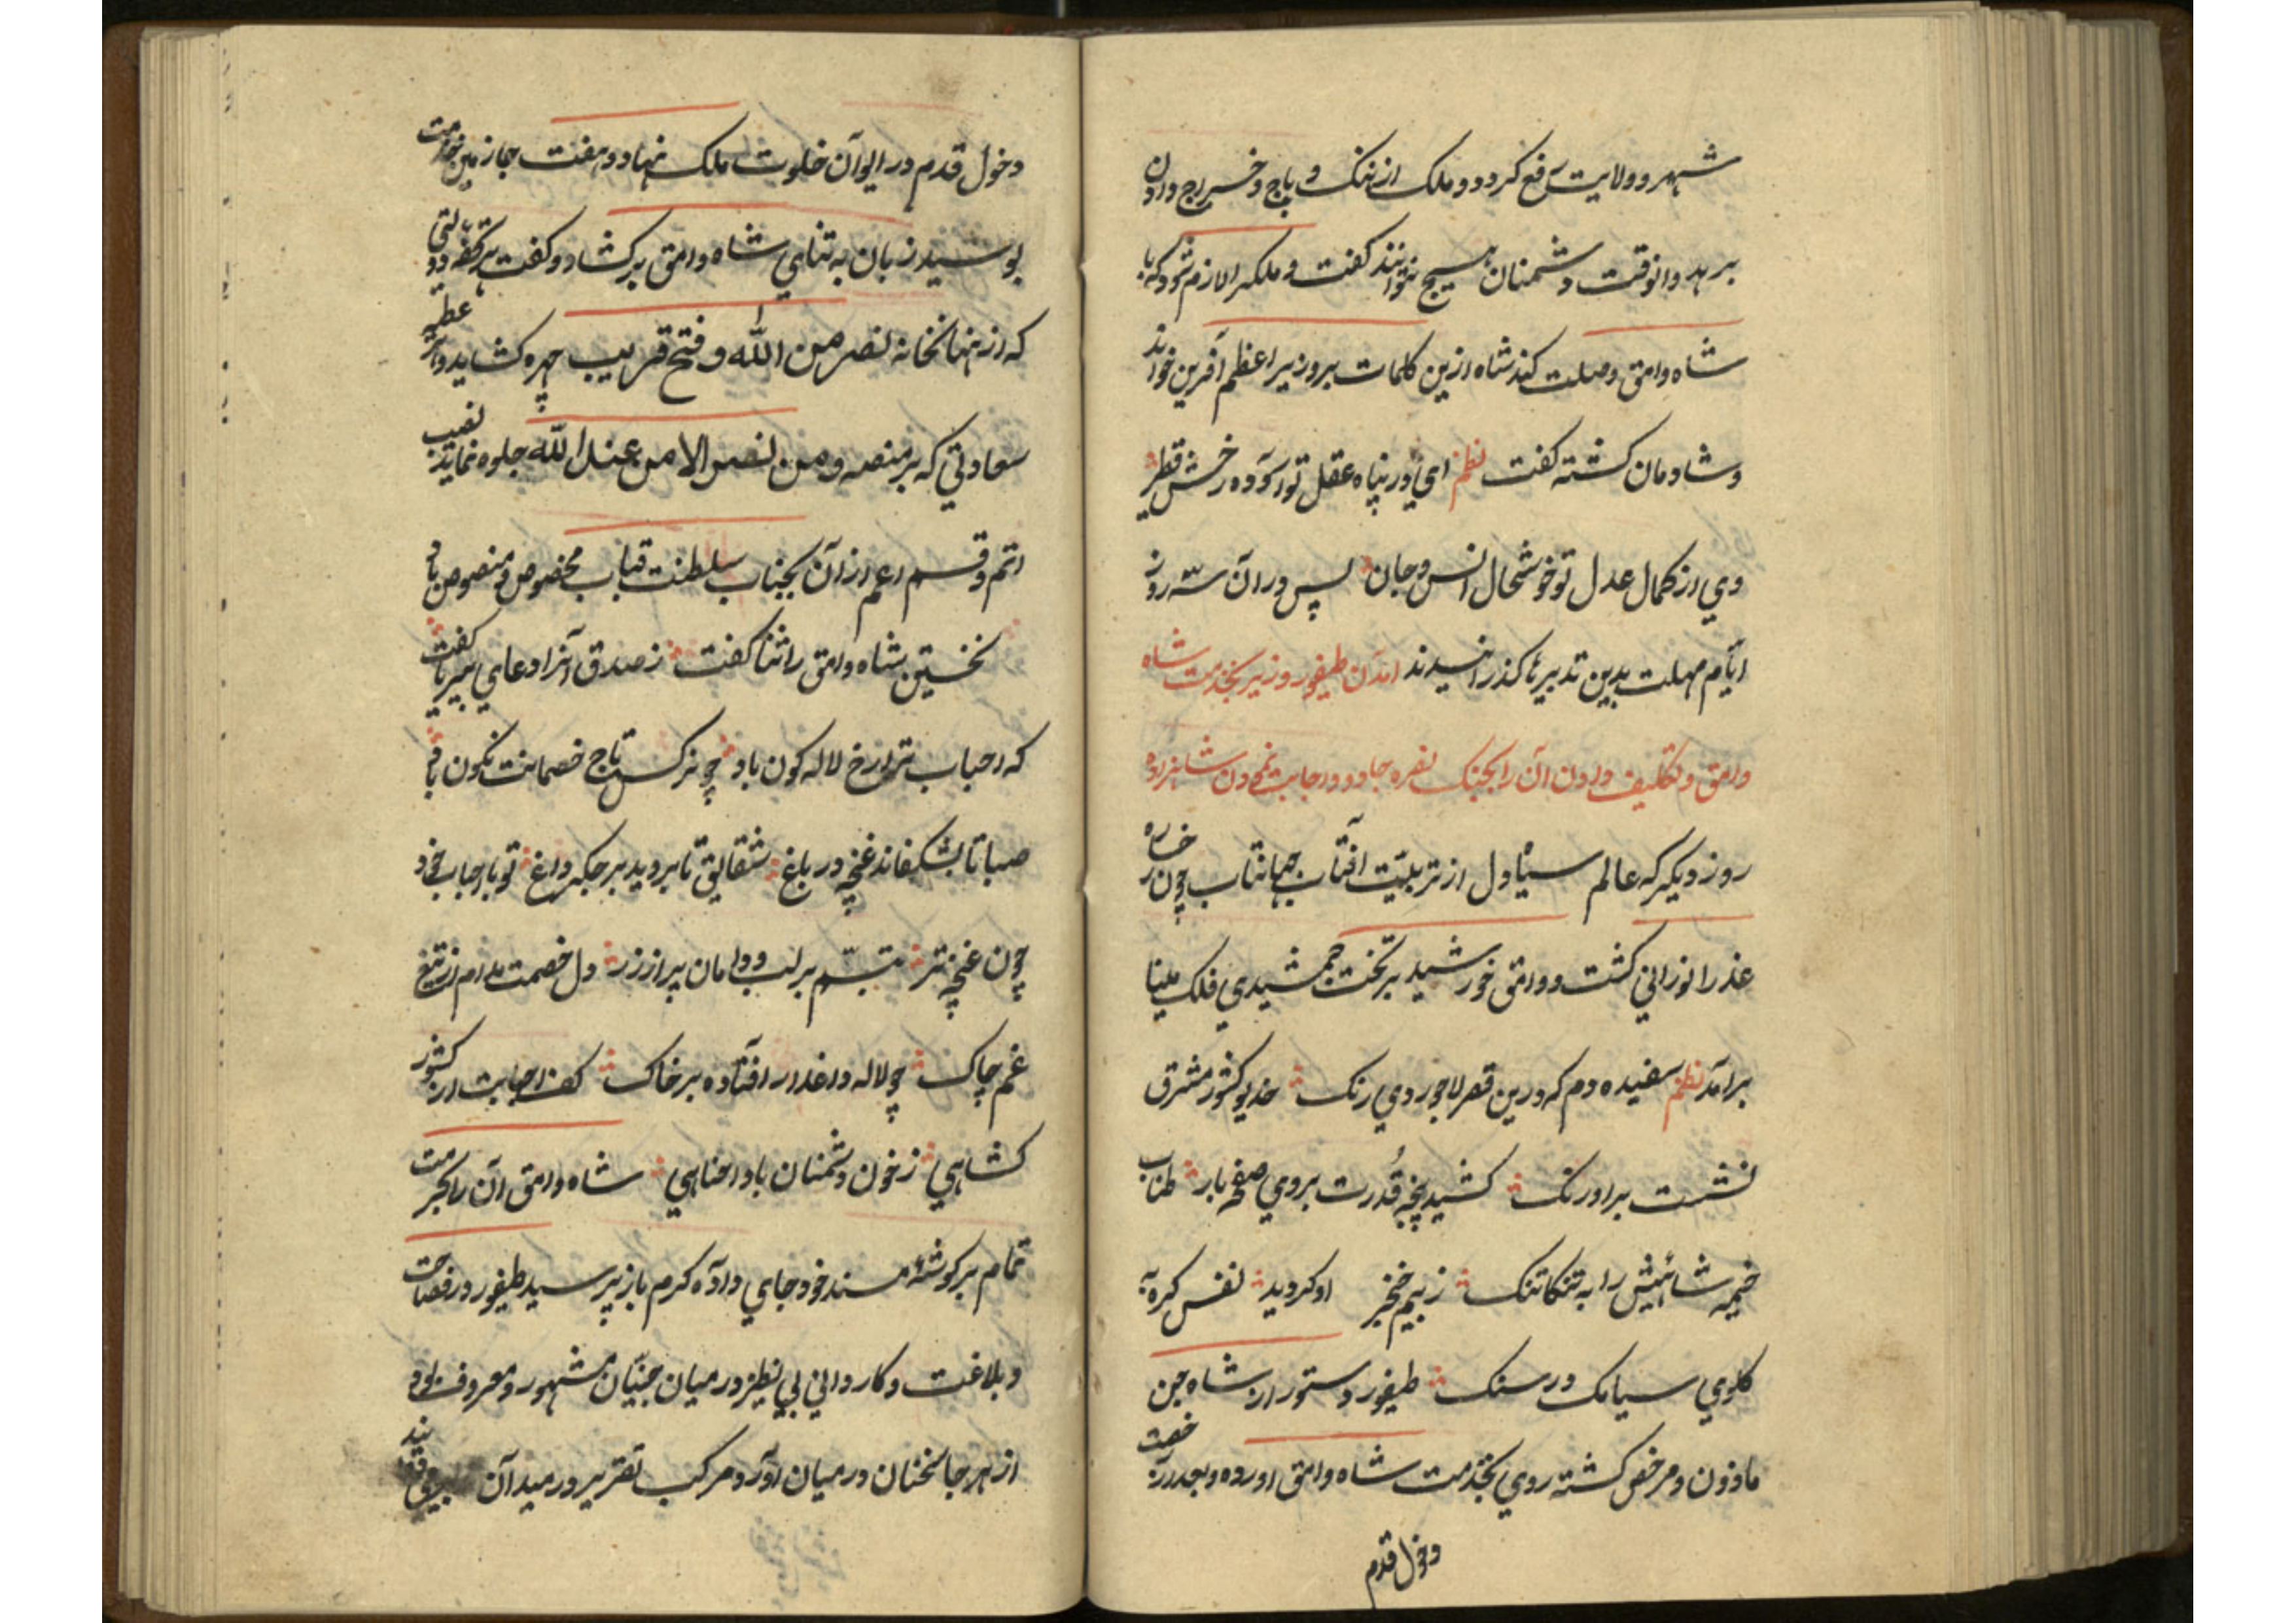 شهر و ولایت رفع کردد و ملک از ننک و باج و خراج دادن
برهد و انوقت دشمنان هیچ نتوانند کفت و ملکرا لازم شود که با
شاه وامق وصلت کند شاه ازین کلمات بر وزیر اعظم آفرین خواند
و شادمان کشته کفت نظم ای در پناه عقل تو آسوده
وی از کمال عدل تو خوشحال انس و جان پس در آن سه روز
ایام مهلت بدین تدبیرها کذرانیدند امدن طیفور وزیر بخدمت شاه
وامق و تکلیف دادن آن را بجنک نفره جادو و اجابت نمودن شاهزاده
روز دیکر که عالم سیاه دل از تربیت افتاب جهانتاب چون رخساره
عذرا نورانی کشت و وامق خورشید بر تخت جمشیدی فلک مینا
برامد نظم سفیده دم که درین قصر لاجوردی رنک خدیو کشور مشرق
نشست بر اورنک کشید پنجه قدرت بروی صفحه بار طناب
خیمه شاهیش را به تنکاتنک ز بیم خنجر او کردید نفس کره به
کلوی سیامک در سنک طیفور دستور از شاه جن
ماذون و مرخص کشته روی بخدمت شاه وامق اورده و بعد از رخصت
دخول قدم
دخول قدم در ایوان خلوت ملک نهاد و هفت جا زمین خدمت
بوسید زبان به ثنای شاه وامق بر کشاد و کفت هر کفه دولتی
که از نهانخانه نصر من الله و فتح قریب چهره کشاید و اثر عطیه
سعادتی که بر منصه و من نصر الا من عند الله جلوه نماید نصیب
اتم و قسم اعم از آن بجناب سلطنت قباب مخصوص و منصوص باد
نخستین شاه وامق را ثنا کفت ز صدق آنرا دعای بیریا کفت
که احباب ترا رخ لاله کون باد چو نرکس تاج خصمانت نکون باد
صبا تا بشکفاند غنچه در باغ شقایق تا بروید بر جکر داغ تو با احباب خود
چون غنچه تر تبسم بر لب و دامان پر از زر دل خصمت مدام از تیغ
غم چاک چو لاله داغدار افتاده بر خاک کف احبابت از کشور
کشایی ز خون دشمنان بادا حنایی شاه وامق آن را بحرمت
تمام بر کوشه مسند خود جای داده کرم باز پرسید طیفور در فصاحت
و بلاغت و کاردانی بی نظیر در میان جنیان مشهور و معروف بود
از هر جا سخنان در میان اورد و مرکب تقریر در میدان